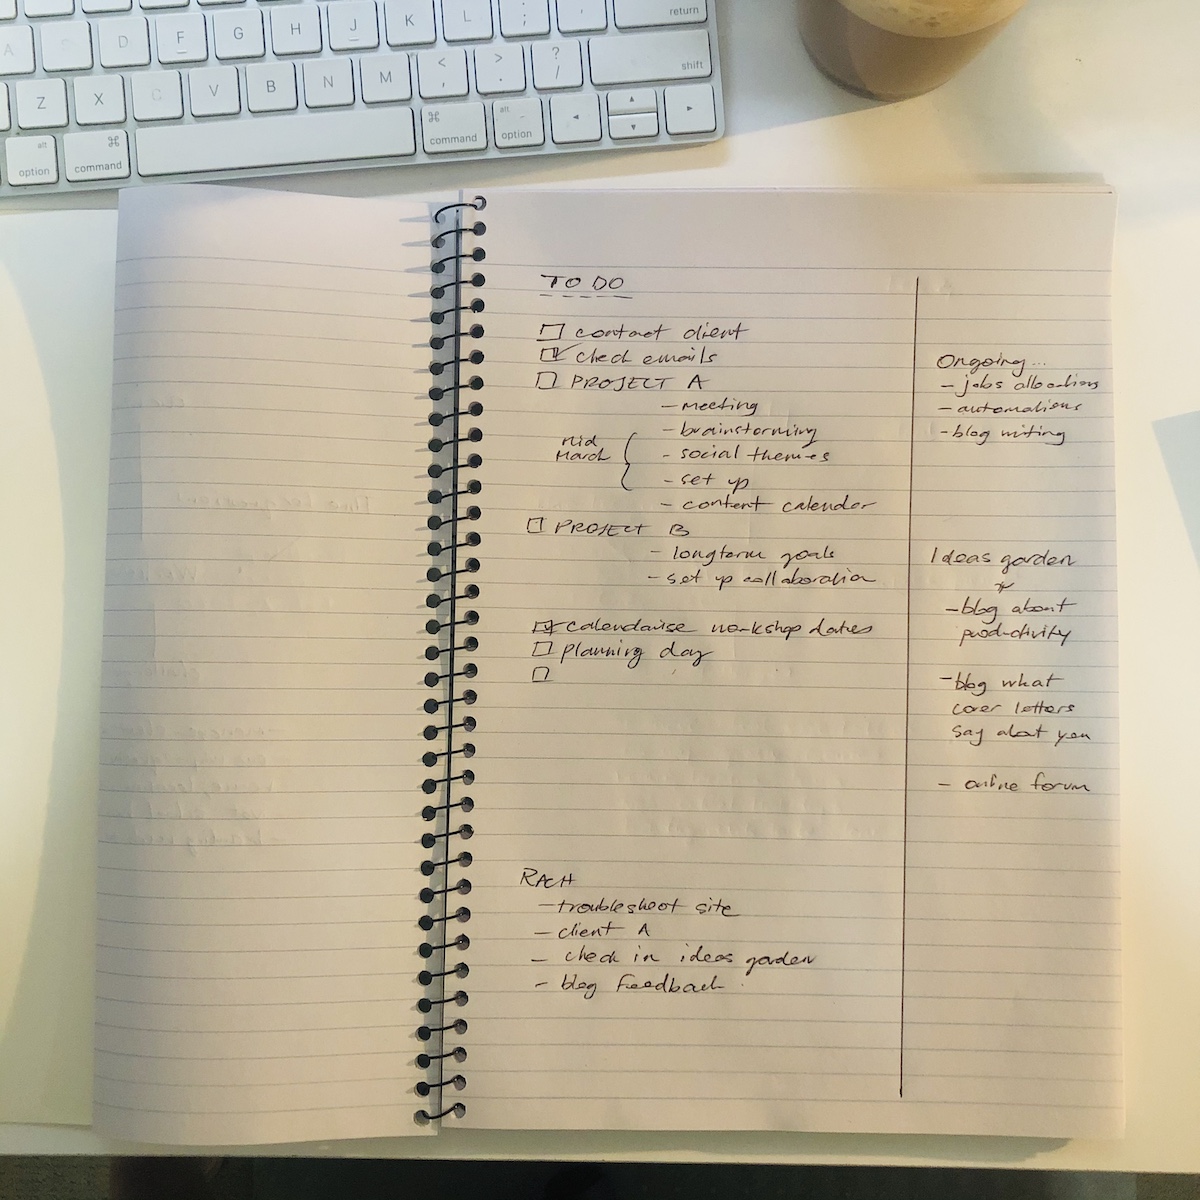 return
A
D
F
G
H
J
K
L
;
shift
Z
X
C
V
B
N
M
<
,
>
.
?
/
alt
option
⌘
command
⌘
command
alt
option
TO DO
contact client
check emails
PROJECT A
- meeting
- brainstorming
- social themes
- set up
- content calendar
Mid
March
PROJECT B
- longterm goals
- set up collaboration
calendarise workshop dates
planning day
RACH
- troubleshoot site
- client A
- check in ideas garden
- blog feedback
Ongoing...
- jobs allocations
- automations
- blog writing
Ideas garden
- blog about
productivity
- blog what
cover letters
say about you
- online forum